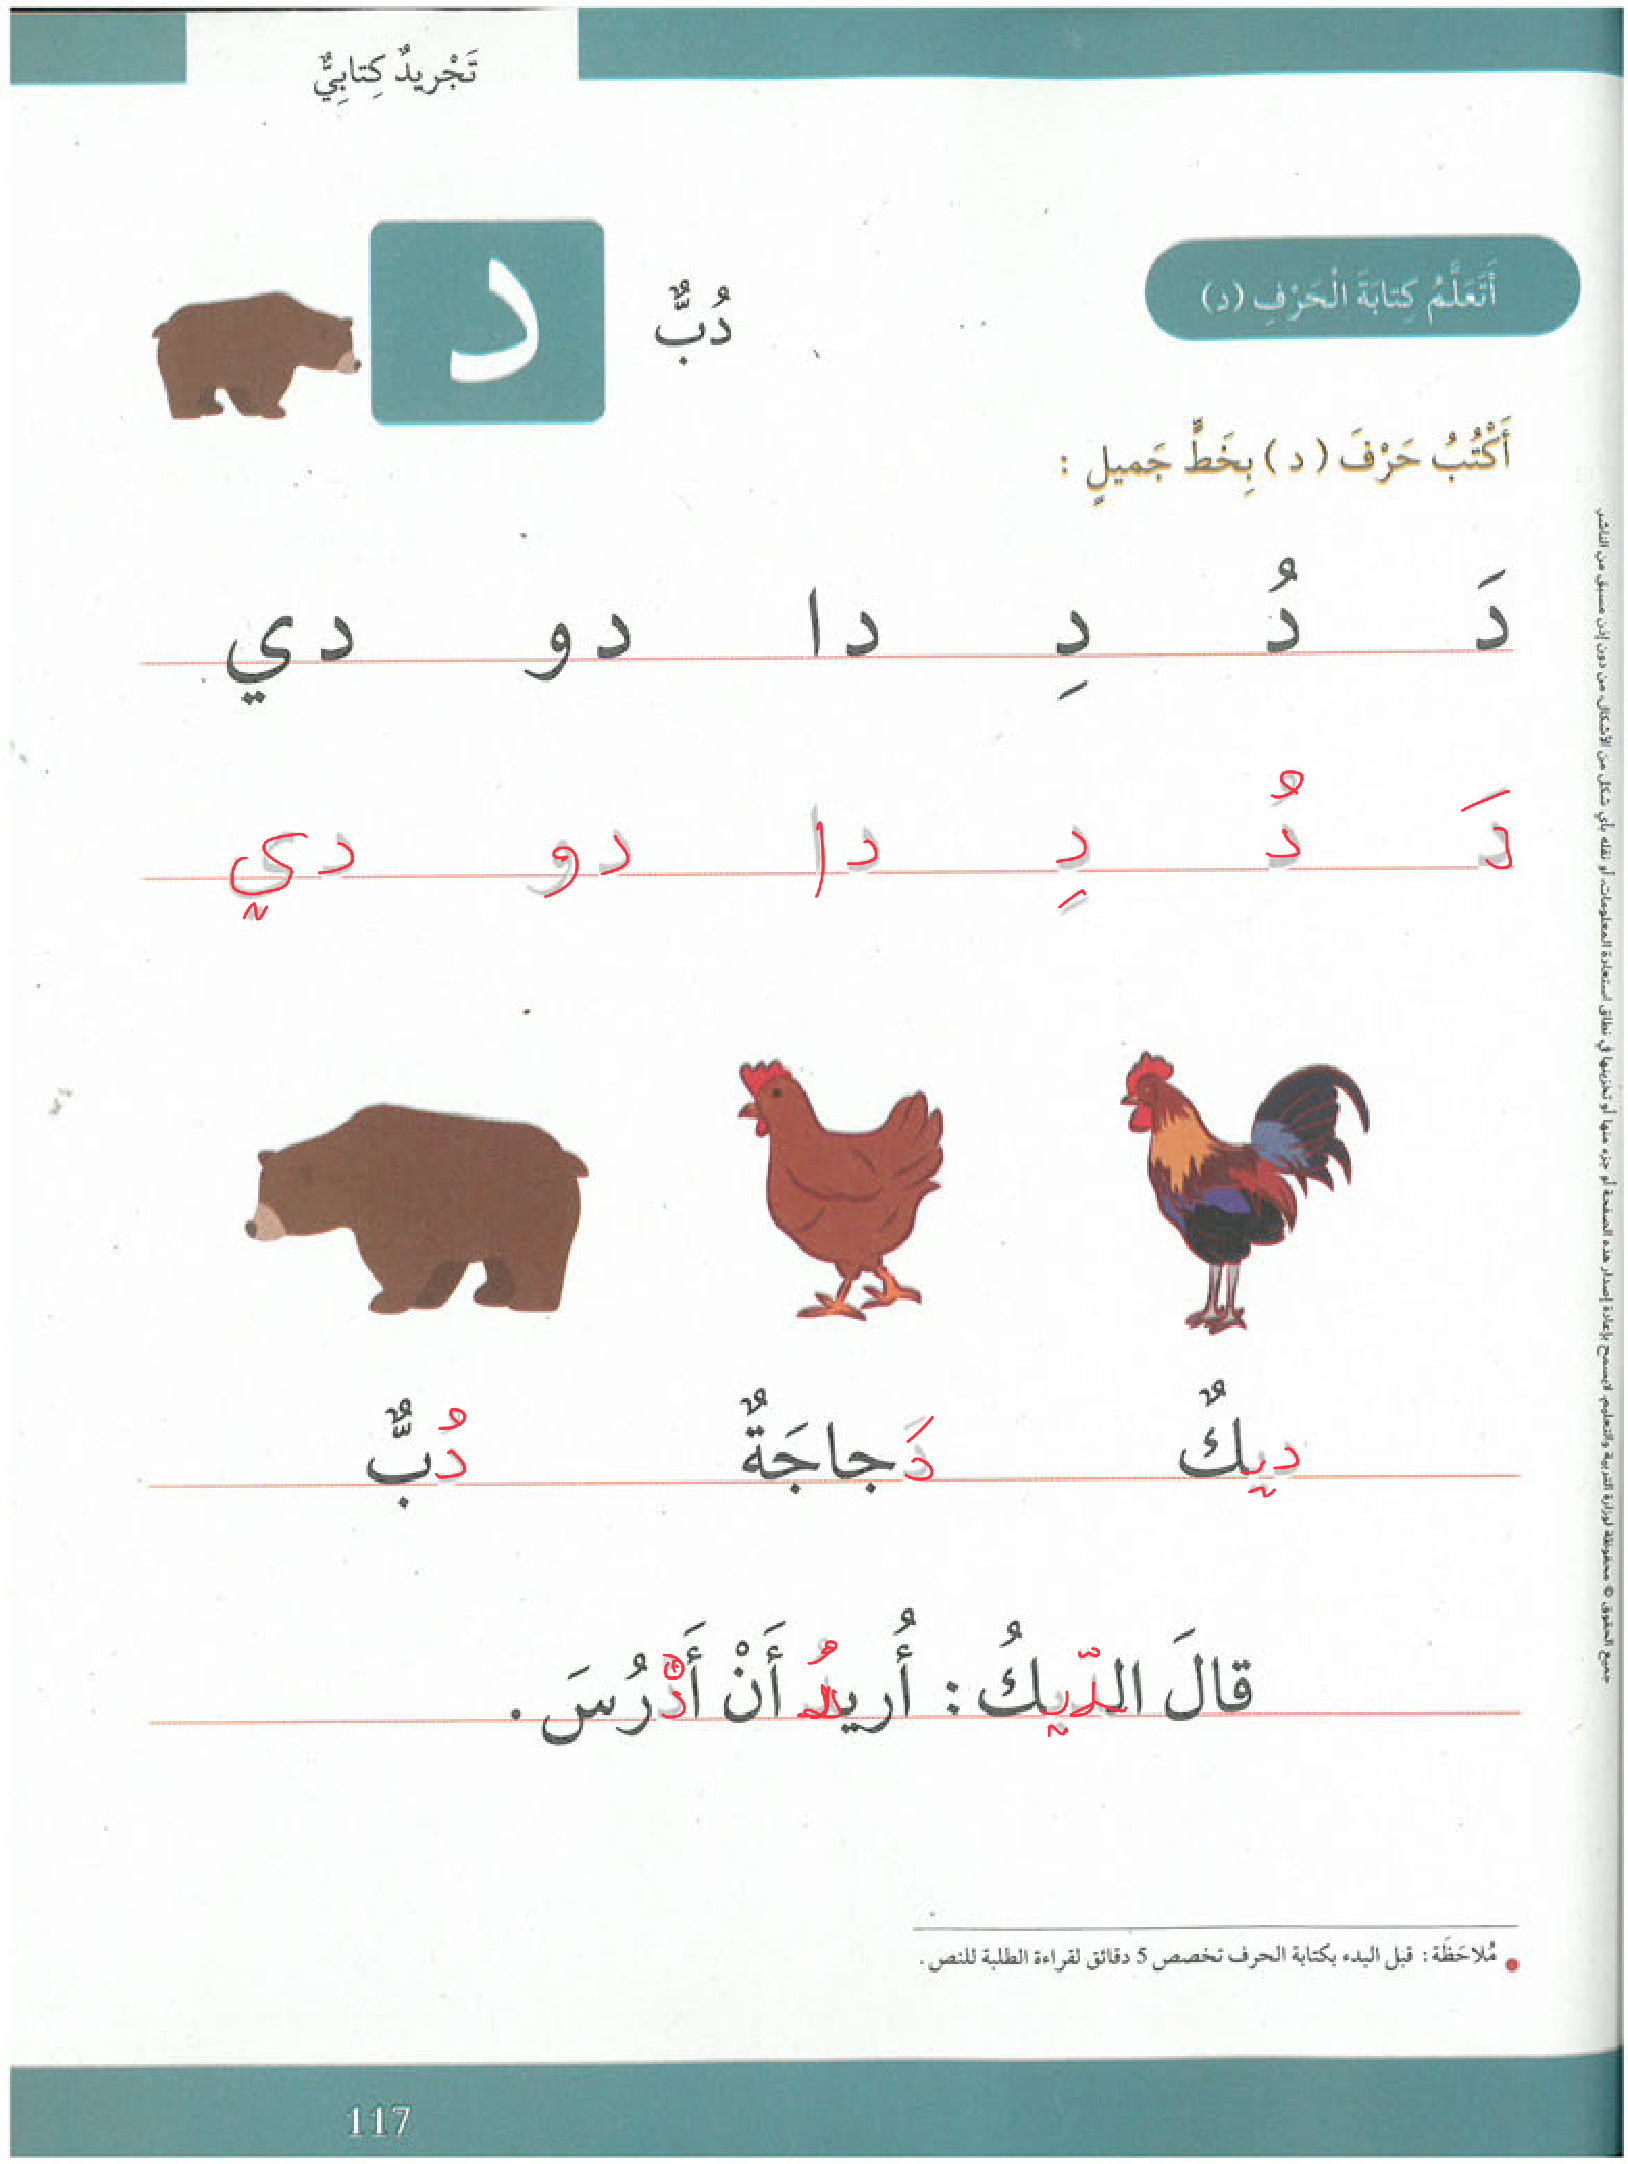 تَجْريدٌ كِتابِيٌّ
أَتَعَلَّمُ كِتابَةَ الْحَرْفِ (د)
دُبٌّ
د
أَكْتُبُ حَرْفَ (د) بِخَطٍّ جَميلٍ :
دَ دُ دِ دا دو دي
دَ دُ دِ دا دو دي
ديكٌ دَجاجَةٌ دُبٌّ
قالَ الدّيكُ : أُريدُ أَنْ أَدْرُسَ .
مُلاحَظَة : قبل البدء بكتابة الحرف تخصص 5 دقائق لقراءة الطلبة للنص .
جميع الحقوق © محفوظة لوزارة التربية والتعليم. لايسمح بإعادة إصدار هذه الصفحة أو جزء منها أو تخزينها في نطاق استعادة المعلومات، أو نقله بأي شكل من الأشكال، من دون إذن مسبق من الناشر.
117